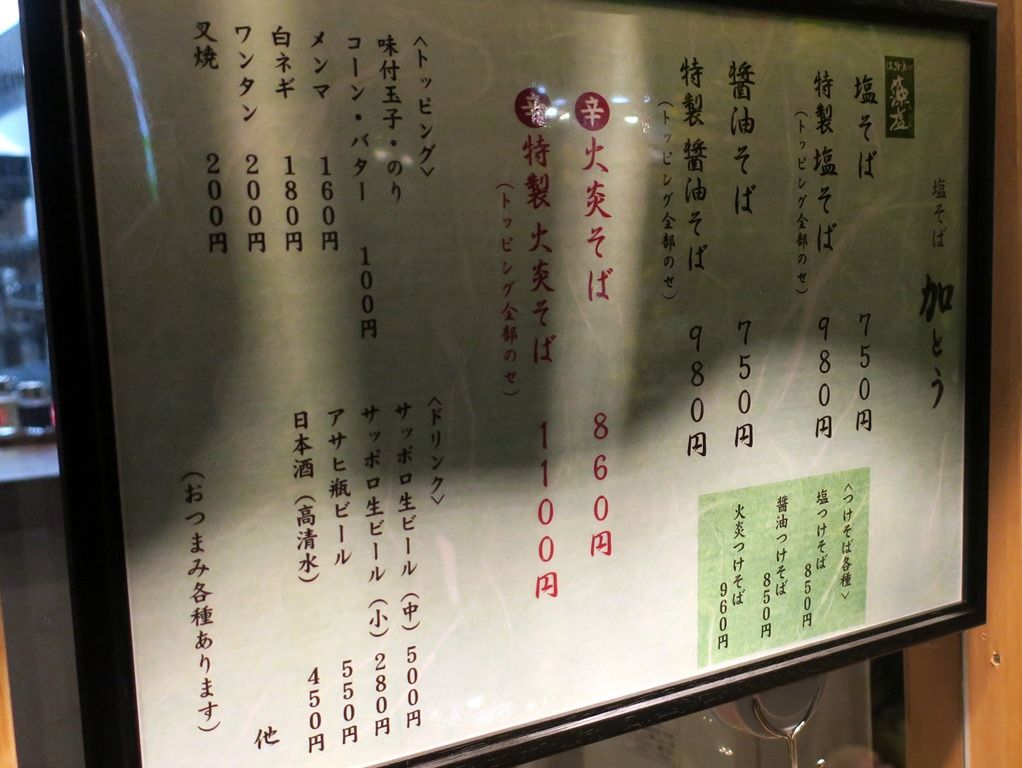 塩そば 加とう
塩そば 750円
特製塩そば 980円
(トッピング全部のせ)
醤油そば 750円
特製醤油そば 980円
(トッピング全部のせ)
辛 火炎そば 860円
辛 特製火炎そば 1100円
(トッピング全部のせ)
〈つけそば各種〉
塩つけそば 850円
醤油つけそば 850円
火炎つけそば 960円
〈トッピング〉
味付玉子・のり
コーン・バター 100円
メンマ 160円
白ネギ 180円
ワンタン 200円
叉焼 200円
〈ドリンク〉
サッポロ生ビール(中) 500円
サッポロ生ビール(小) 280円
アサヒ瓶ビール 550円
日本酒(高清水) 450円
他
(おつまみ各種あります)